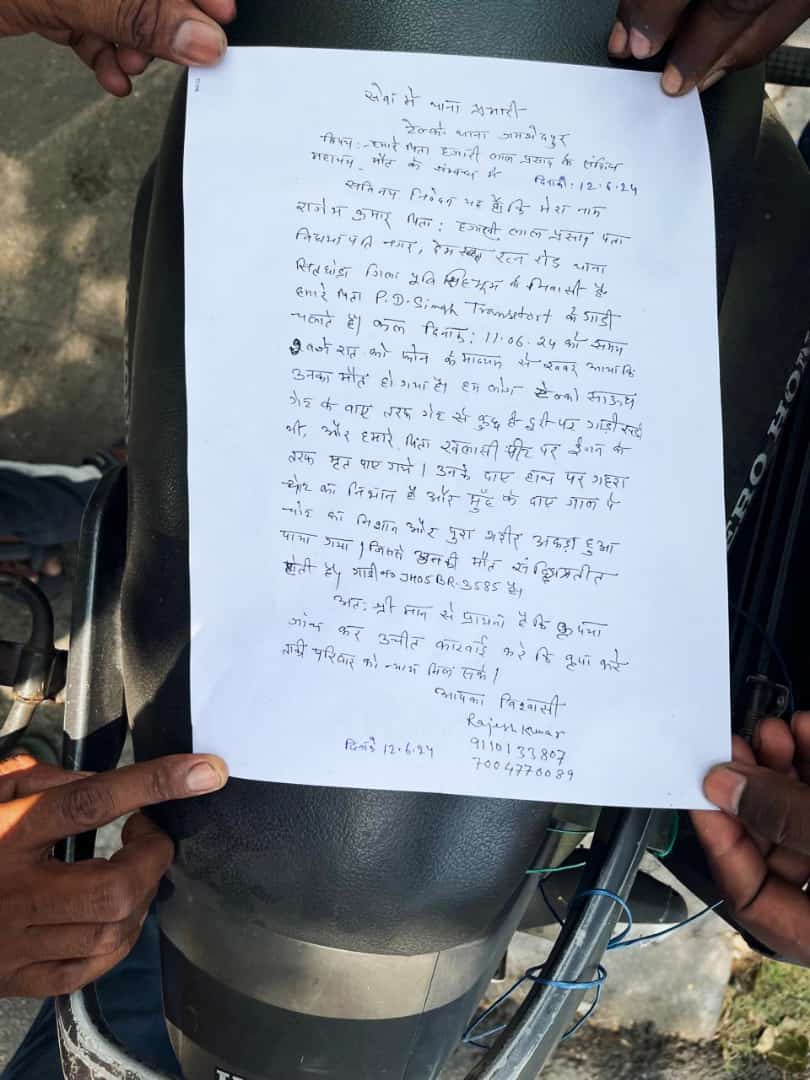 सेवा में थाना प्रभारी
टेल्को थाना जमशेदपुर
विषय:- हमारे पिता हजारी लाल प्रसाद के संदिग्ध
महाशय - मौत के सम्बन्ध में दिनांक: 12.6.24
सविनय निवेदन यह है कि मेरा नाम
राजेश कुमार पिता: हजारी लाल प्रसाद पता
पति नगर, रत्न रोड थाना
सितगोड़ा जिला पूर्वि सिंहभूम के निवासी है
हमारे पिता P.D. Singh Transtort के गाडी
चलाते है। कल दिनांक: 11.06.24 को समय
9 बजे रात को फोन के माध्यम से खबर आया कि
उनका मौत हो गया है। हम लोग टेल्को साऊथ
गेट के बाए तरफ गेट से कुछ ही दूरी पर गाड़ी खड़ी
थी, और हमारे पिता खलासी सीट पर ईंजन के
तरफ मृत पाए गये। उनके दाए हाथ पर गहरा
चोट का निशान है और मुँह के दाए गाल पे
चोट का निशान और पुरा शरीर अकड़ा हुआ
पाया गया। जिससे उनकी मौत संदिग्ध प्रतीत
होती है। गाडी नं० JH05BR-3585 है।
अत: श्री मान से प्रार्थना है कि कृपया
जांच कर उचीत कारवाई करे कि कृपा करे
ताकी परिवार को न्याय मिल सके।
आपका विश्वासी
Rajesh Kumar
दिनांक 12.6.24 9110133807
7004770089
HERO HON